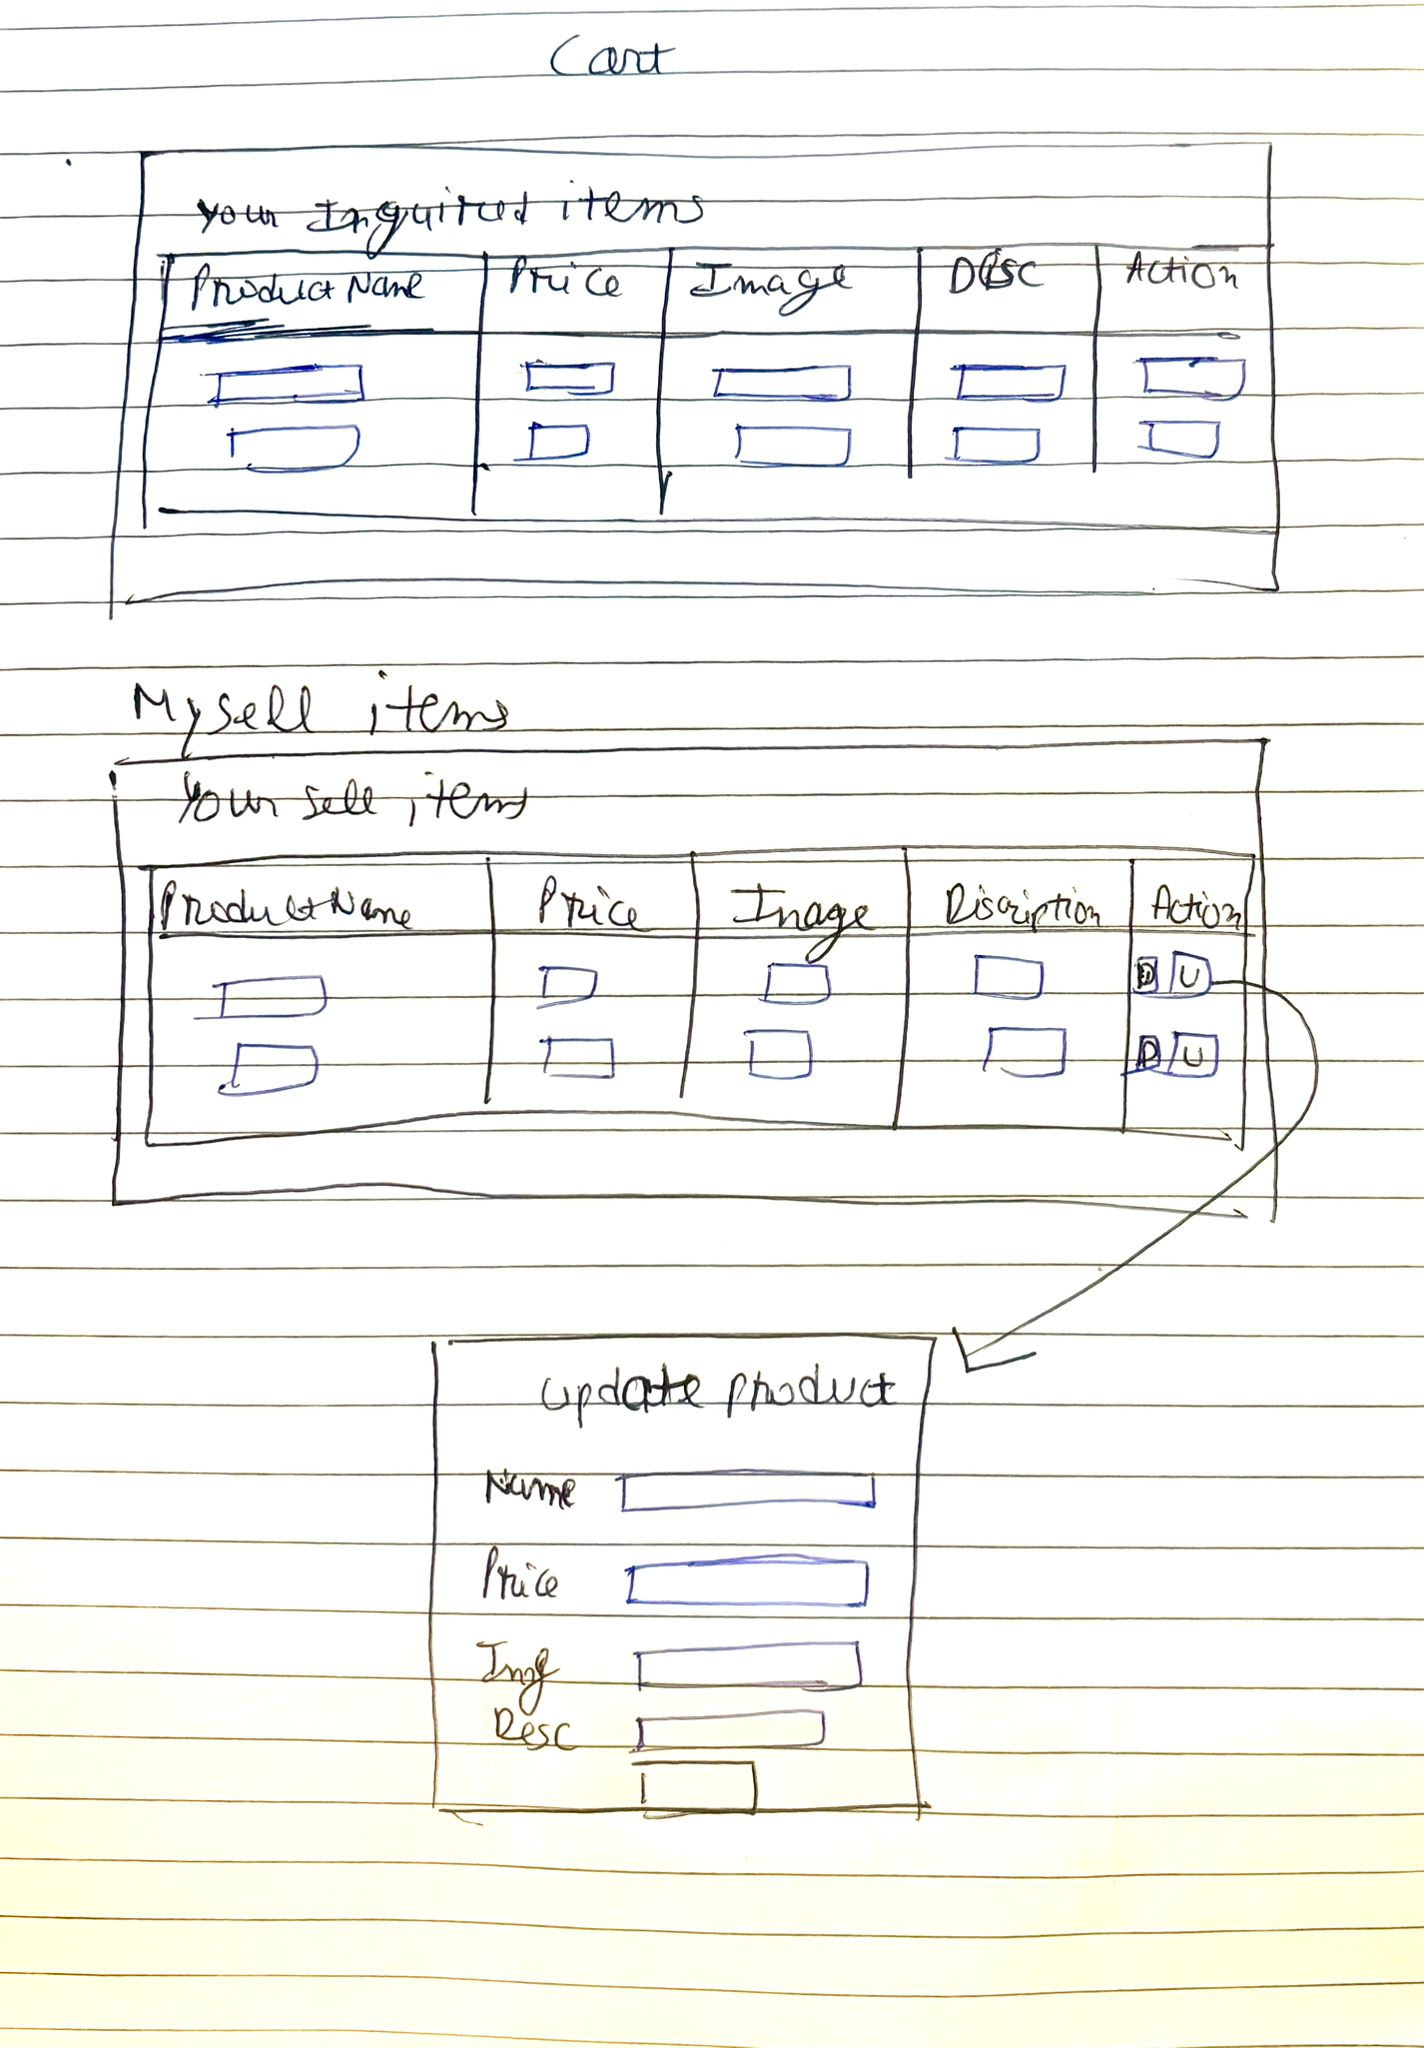 Cart
Your Inquired items
Product Name Price Image Desc Action
My sell items
Your sell items
Product Name Price Image Discription Action
D U
D U
update product
Name
Price
Img
Desc